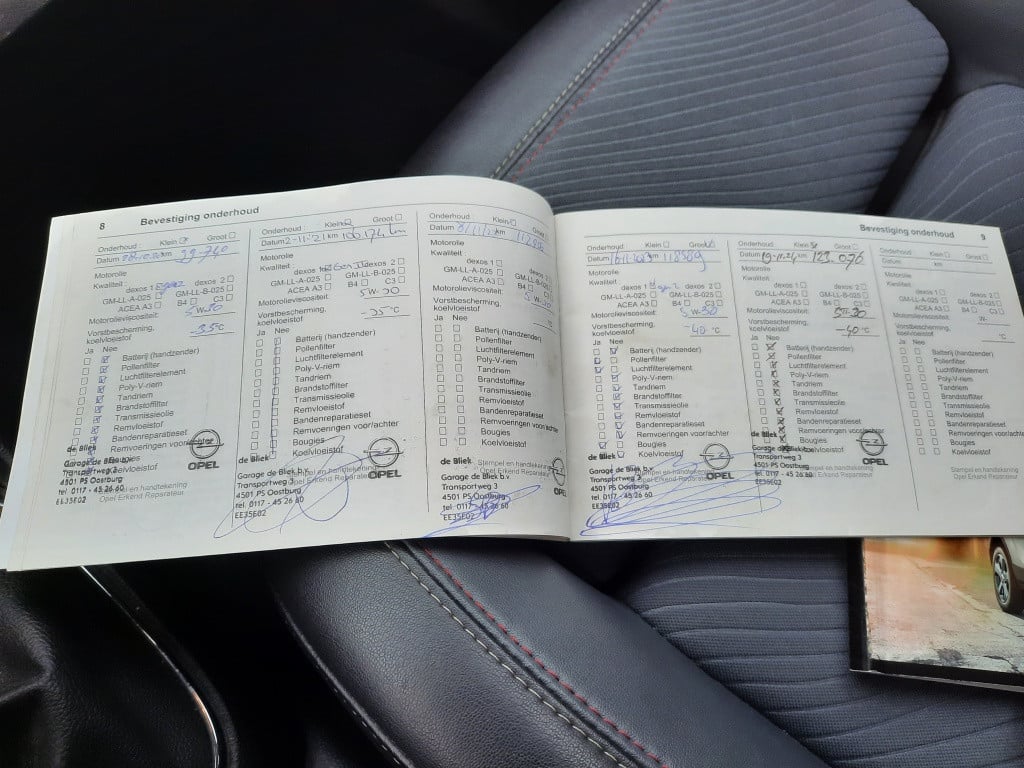 8 Bevestiging onderhoud
Onderhoud : Klein Groot
Datum km
Motorolie
Kwaliteit : dexos 1 dexos 2
GM-LL-A-025 GM-LL-B-025
ACEA A3 B4 C3
Motorolieviscositeit: 5W-30
Vorstbescherming,
koelvloeistof -35°C
Ja Nee
Batterij (handzender)
Pollenfilter
Luchtfilterelement
Poly-V-riem
Tandriem
Brandstoffilter
Transmissieolie
Remvloeistof
Bandenreparatieset
Remvoeringen voor/achter
Koelvloeistof
de Bliek
Garage de Bliek b.v.
Transportweg 3
4501 PS Oostburg
tel. 0117 - 45 26 60
EE35E02
OPEL
Stempel en handtekening
Opel Erkend Reparateur
Onderhoud : Klein Groot
Datum 2-11-21 km 106174 km
Motorolie
Kwaliteit : dexos 1 dexos 2
GM-LL-A-025 GM-LL-B-025
ACEA A3 B4 C3
Motorolieviscositeit: 5W-30
Vorstbescherming,
koelvloeistof -35°C
Ja Nee
Batterij (handzender)
Pollenfilter
Luchtfilterelement
Poly-V-riem
Tandriem
Brandstoffilter
Transmissieolie
Remvloeistof
Bandenreparatieset
Remvoeringen voor/achter
Bougies
Koelvloeistof
de Bliek
Garage de Bliek b.v.
Transportweg 3
4501 PS Oostburg
tel. 0117 - 45 26 60
EE35E02
OPEL
Opel Erkend Reparateur
Onderhoud : Klein Groot
Datum km
Motorolie
Kwaliteit : dexos 1 dexos 2
GM-LL-A-025 GM-LL-B-025
ACEA A3 B4 C3
Motorolieviscositeit: 5W-30
Vorstbescherming,
koelvloeistof
Ja Nee
Batterij (handzender)
Pollenfilter
Luchtfilterelement
Poly-V-riem
Tandriem
Brandstoffilter
Transmissieolie
Remvloeistof
Bandenreparatieset
Remvoeringen voor/achter
Bougies
Koelvloeistof
de Bliek
Garage de Bliek b.v.
Transportweg 3
4501 PS Oostburg
tel. 0117 - 45 26 60
EE35E02
OPEL
Stempel en handtekening
Opel Erkend Reparateur
Bevestiging onderhoud 9
Onderhoud : Klein Groot
Datum km
Motorolie
Kwaliteit : dexos 1 dexos 2
GM-LL-A-025 GM-LL-B-025
ACEA A3 B4 C3
Motorolieviscositeit: 5W-30
Vorstbescherming,
koelvloeistof -40°C
Ja Nee
Batterij (handzender)
Pollenfilter
Luchtfilterelement
Poly-V-riem
Tandriem
Brandstoffilter
Transmissieolie
Remvloeistof
Bandenreparatieset
Remvoeringen voor/achter
Bougies
Koelvloeistof
de Bliek
Garage de Bliek b.v.
Transportweg 3
4501 PS Oostburg
tel. 0117 - 45 26 60
EE35E02
OPEL
Stempel en handtekening
Opel Erkend Reparateur
Onderhoud : Klein Groot
Datum 19-11-24 km 123.076
Motorolie
Kwaliteit : dexos 1 dexos 2
GM-LL-A-025 GM-LL-B-025
ACEA A3 B4 C3
Motorolieviscositeit: 5W-30
Vorstbescherming,
koelvloeistof -40°C
Ja Nee
Batterij (handzender)
Pollenfilter
Luchtfilterelement
Poly-V-riem
Tandriem
Brandstoffilter
Transmissieolie
Remvloeistof
Bandenreparatieset
Remvoeringen voor/achter
Bougies
Koelvloeistof
de Bliek
Garage de Bliek b.v.
Transportweg 3
4501 PS Oostburg
tel. 0117 - 45 26 60
EE35E02
OPEL
Stempel en handtekening
Opel Erkend Reparateur
Onderhoud : Klein Groot
Datum km
Motorolie
Kwaliteit : dexos 1 dexos 2
GM-LL-A-025 GM-LL-B-025
ACEA A3 B4 C3
Motorolieviscositeit: W-
Vorstbescherming,
koelvloeistof °C
Ja Nee
Batterij (handzender)
Pollenfilter
Luchtfilterelement
Poly-V-riem
Tandriem
Brandstoffilter
Transmissieolie
Remvloeistof
Bandenreparatieset
Remvoeringen voor/achter
Bougies
Koelvloeistof
Stempel en handtekening
Opel Erkend Reparateur